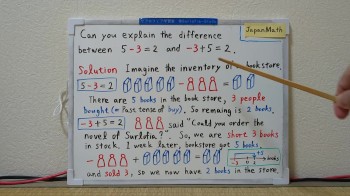 JapanMath
Can you explain the difference
between 5-3=2 and -3+5=2.
Solution Imagine the inventory of a bookstore.
5-3=2 =
There are 5 books in the book store, 3 people
bought (= Past tense of buy). So remaining is 2 books.
-3+5=2 said "Could you order the
novel of Surlotia?" So, we are short 3 books
in stock. 1 week later, bookstore got 5 books.
- + =
and sold 3, so we now have 2 books in the store.